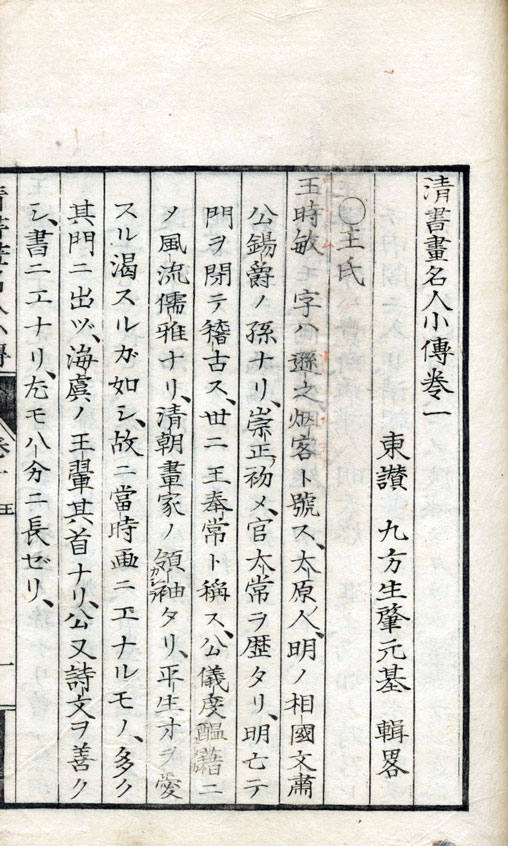 清書畫名人小傳卷一
東讃 九方生肇元基 輯畧
〇王氏
王時敏字ハ遜之烟客ト號ス、太原人、明ノ相國文肅
公錫爵ノ孫ナリ、崇正初メ、官太常ヲ歴タリ、明亡テ
門ヲ閉テ稽古ス、世ニ王奉常ト稱ス、公儀度醞籍ニ
〆風流儒雅ナリ、清朝畫家ノ領袖タリ、平生才ヲ愛
スル渴スルガ如シ、故ニ當時画ニ工ナルモノ、多ク
其門ニ出ヅ、海虞ノ王翬其首ナリ、公又詩文ヲ善ク
シ、書ニ工ナリ、尤モ八分ニ長ゼリ、